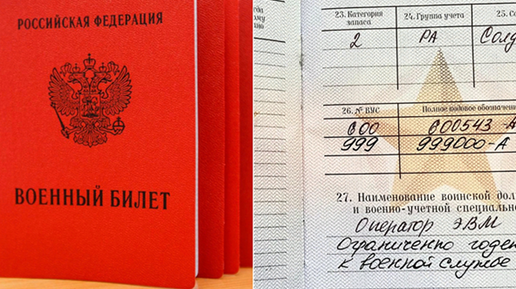 РОССИЙСКАЯ ФЕДЕРАЦИЯ
ВОЕННЫЙ БИЛЕТ
23. Категория запаса
24. Группа учета
25.
2
РА
26. № ВУС
Полное кодовое
С00
С00543-А
999
999000-А
27. Наименование воинской
и военно-учетной
Оператор ЭВМ
Ограниченно годен
к военной службе